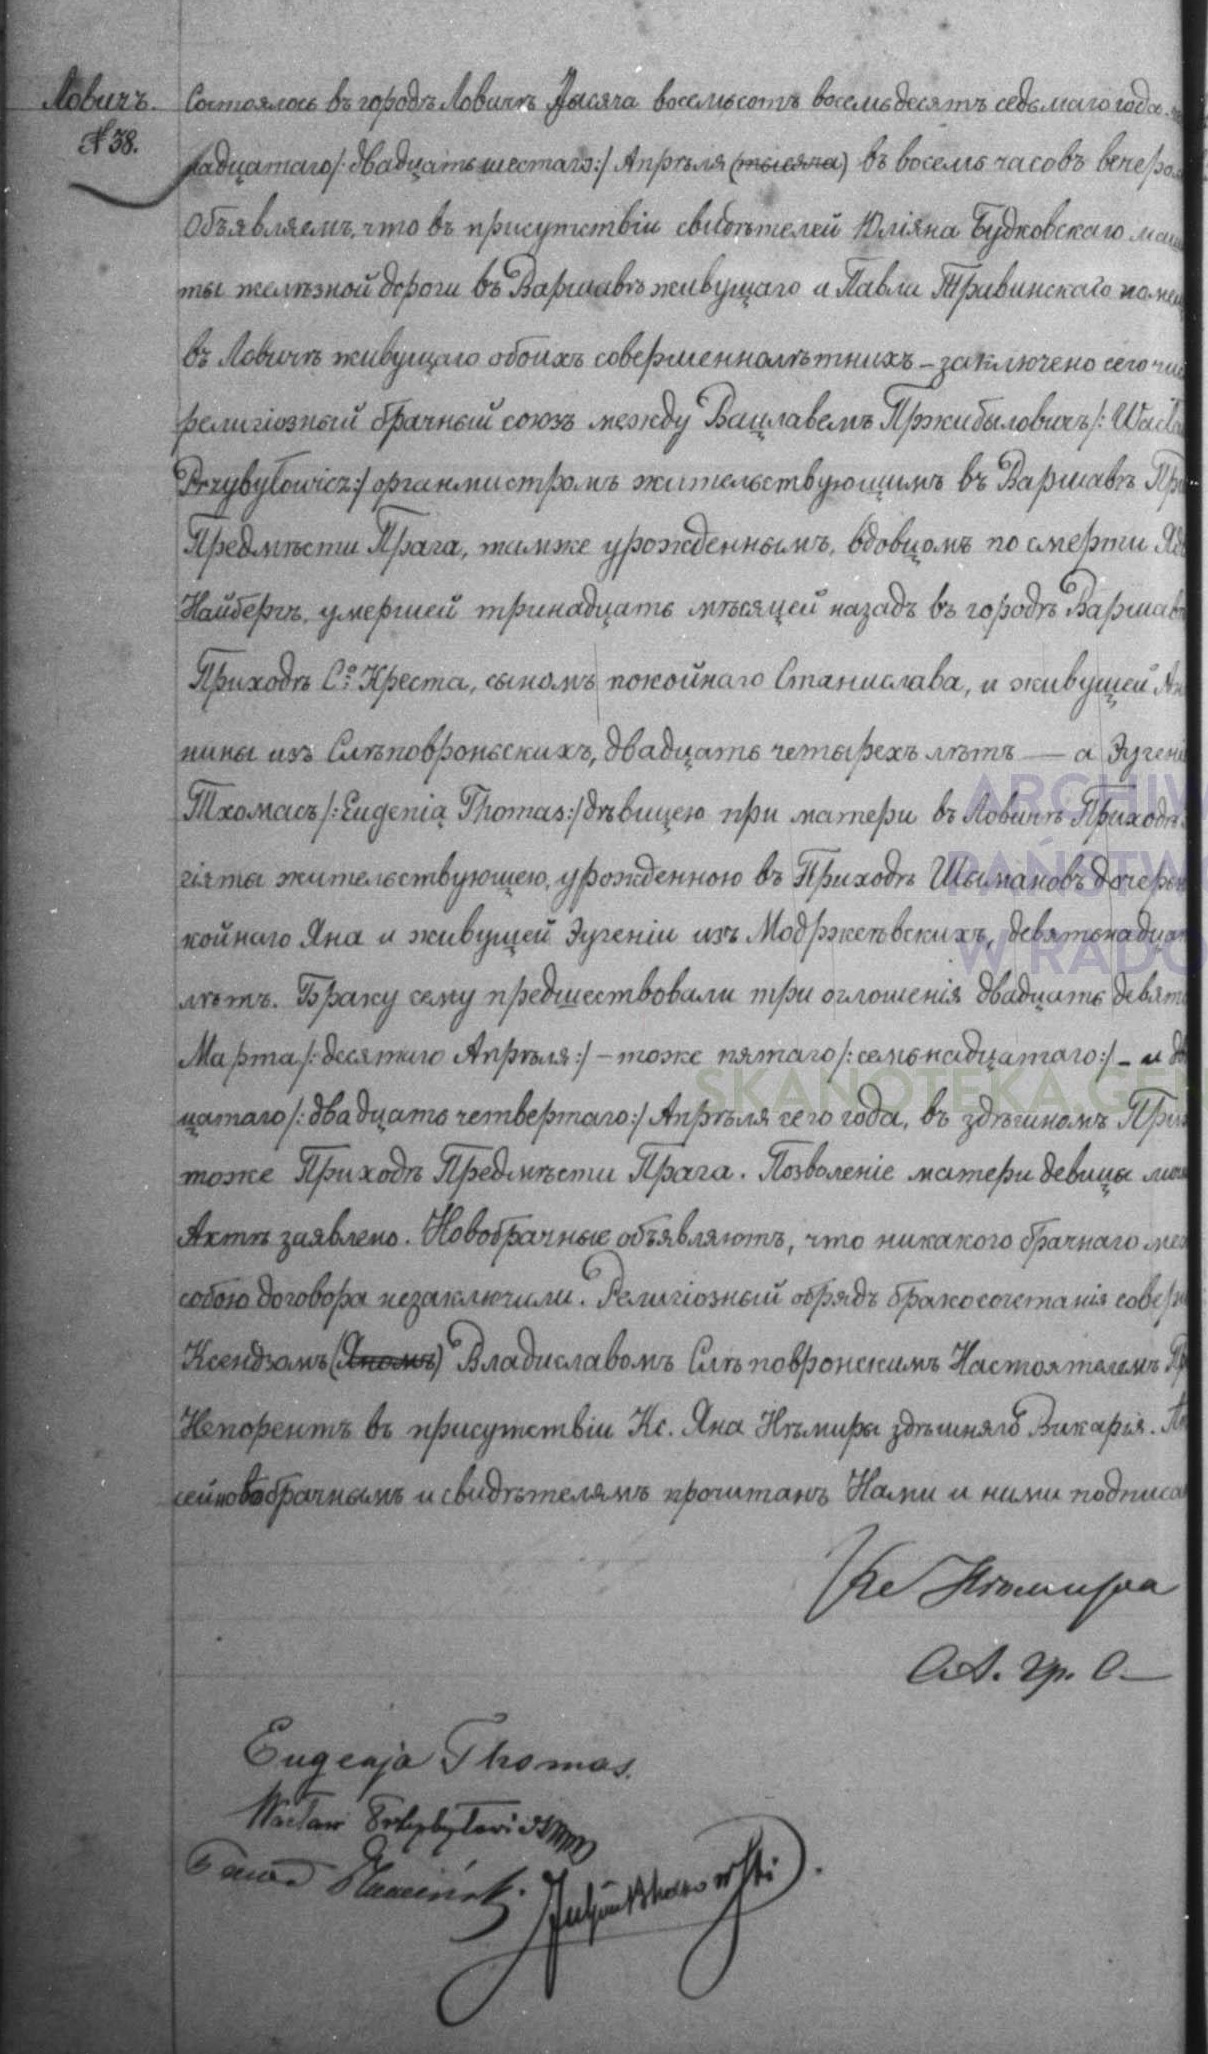 Ловичъ.
№ 38.
Состоялось въ городѣ Ловичѣ Тысяча восемьсотъ восемьдесятъ седьмаго года
надцатаго /: двадцать шестаго :/ Апрѣля (тысяча) въ восемь часовъ вечера
Объявляемъ, что въ присутствіи свидѣтелей Юліяна Будковскаго
ты желѣзной дороги въ Варшавѣ живущаго и Павла Травинскаго
въ Ловичѣ живущаго обоихъ совершеннолѣтнихъ – заключено сего
религіозный брачный союзъ между Вацлавемъ Пржибыловичъ /: Wacła
Przybyłowicz :/ органмистромъ жительствующимъ въ Варшавѣ
Предмѣсти Прага, тамже урожденнымъ, вдовцомъ по смерти
Найбергъ, умершей тринадцать мѣсяцей назадъ въ городѣ Варшавѣ
Приходѣ Сго Креста, сыномъ покойнаго Станислава, и живущей
нины изъ Слѣповроньскихъ, двадцать четырехъ лѣтъ — а Эугені
Тхомасъ /: Eugenią Thomas :/ дѣвицею при матери въ Ловичѣ Приходѣ
гіяты жительствующею, урожденною въ Приходѣ Шымановъ дочерью
койнаго Яна и живущей Эугеніи изъ Модржеѣвскихъ, девятьнадца
лѣтъ. Браку сему предшествовали три оглошенія двадцать девят
Марта /: десятаго Апрѣля :/ – тоже пятаго /: семьнадцатаго :/ – и дв
цатаго /: двадцать четвертаго :/ Апрѣля сего года, въ здѣшномъ При
тоже Приходѣ Предмѣсти Прага. Позволеніе матери девицы
Актѣ заявлено. Новобрачные объявляютъ, что никакого брачнаго меж
собою договора незаключили. Религіозный обрядъ бракосочетанія совер
Ксендзомъ (Яномъ) Владиславомъ Слѣповронскимъ Настоятелемъ Пр
Непорентъ въ присутствіи Кс. Яна Нѣмиры здѣшняго Викарія.
сей новобрачнымъ и свидѣтелямъ прочитанъ Нами и ними подписа
Кс Нѣмира
С.А. гр. С.
Eugenja Thomas.
Wacław Przybyłowicz